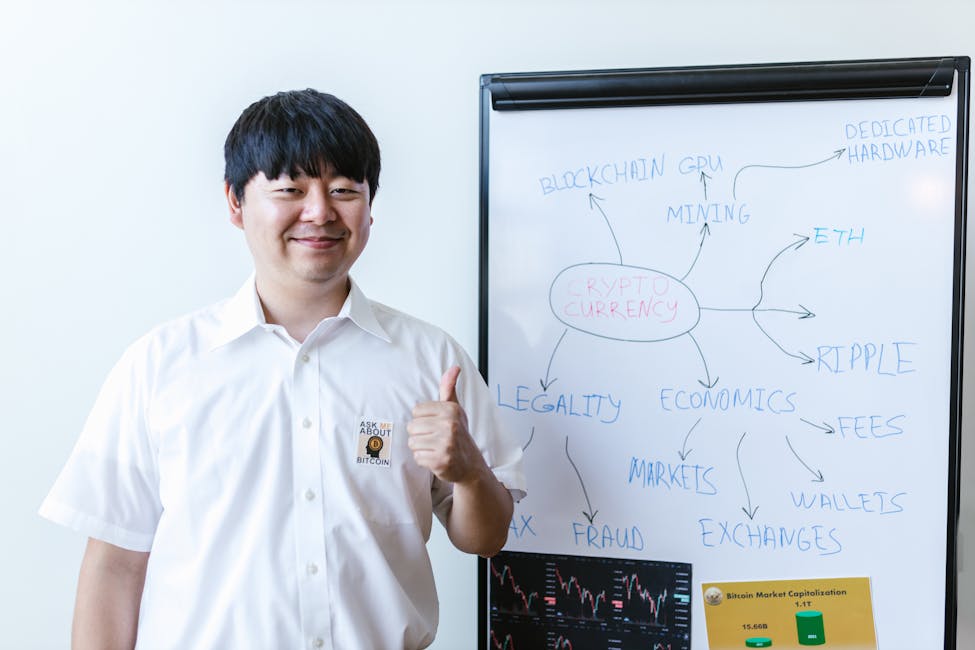 ASK ME
ABOUT
BITCOIN
DEDICATED
HARDWARE
BLOCKCHAIN
GPU
MINING
ETH
CRYPTO
CURRENCY
RIPPLE
LEGALITY
ECONOMICS
FEES
MARKETS
WALLETS
AX
FRAUD
EXCHANGES
Bitcoin Market Capitalization
1.1T
15.66B